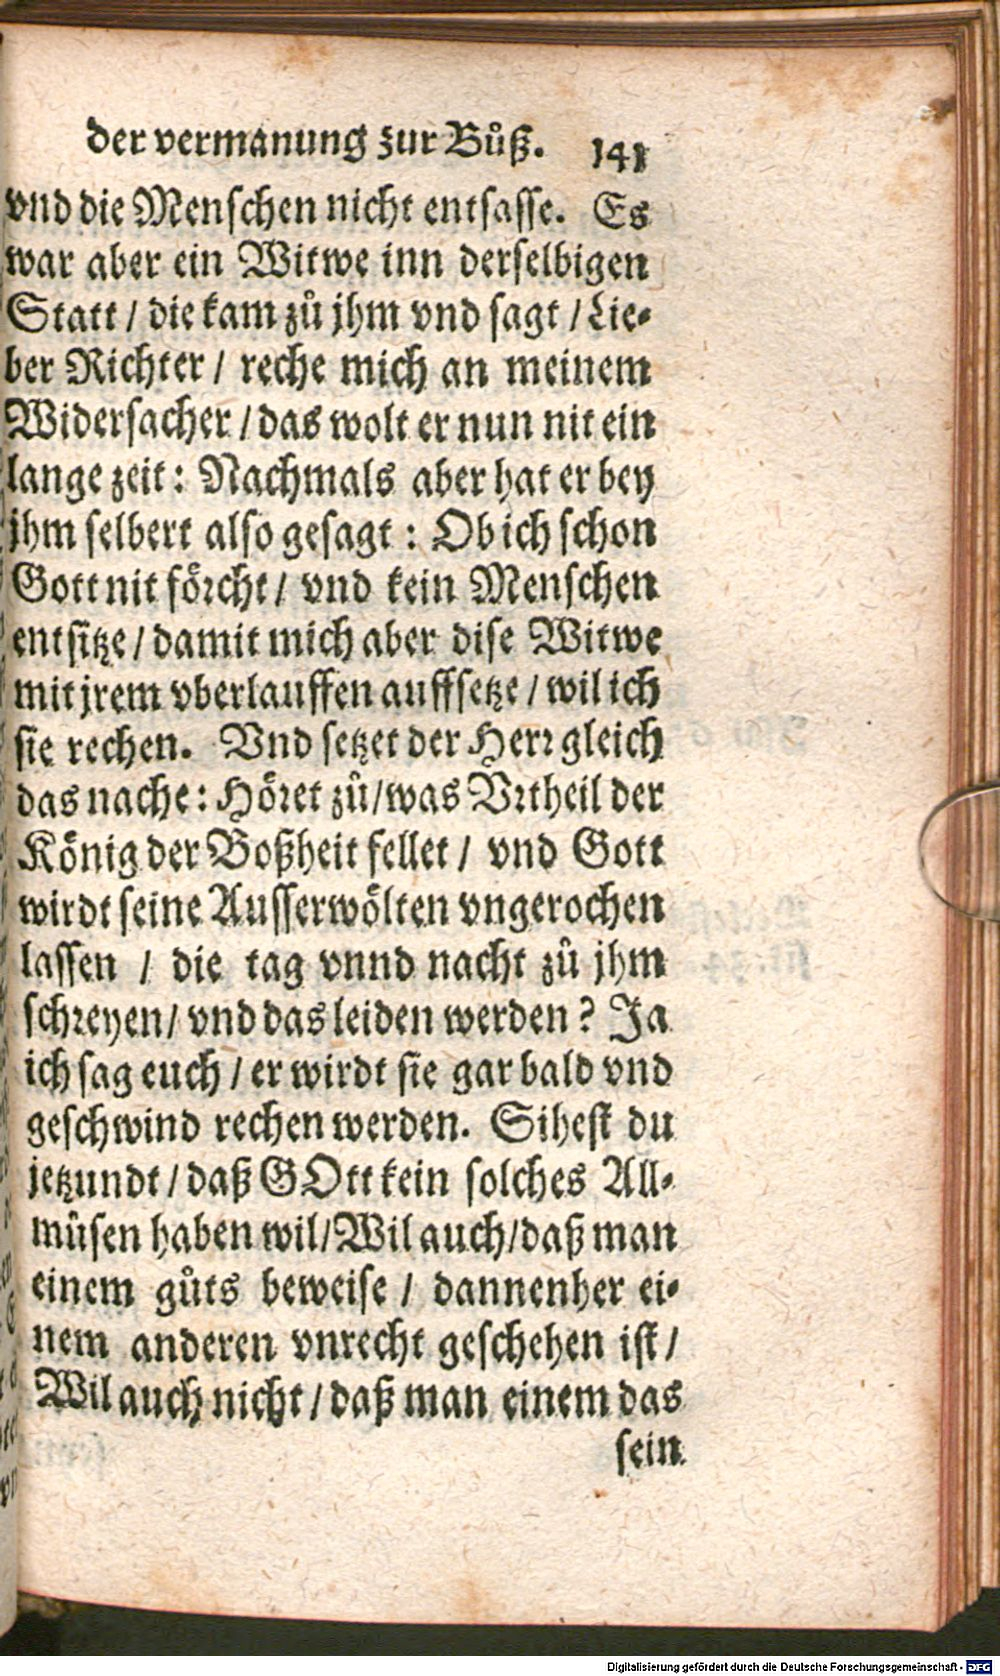 der vermanung zur Bůß. 141
vnd die Menschen nicht entsasse. Es
war aber ein Witwe inn derselbigen
Statt / die kam zů jhm vnd sagt / Lie-
ber Richter / reche mich an meinem
Widersacher / das wolt er nun nit ein
lange zeit: Nachmals aber hat er bey
jhm selbert also gesagt: Ob ich schon
Gott nit förcht / vnd kein Menschen
entsitze / damit mich aber dise Witwe
mit jrem vberlauffen auffsetze / wil ich
sie rechen. Vnd setzet der Herr gleich
das nache: Höret zů / was Vrtheil der
König der Boßheit fellet / vnd Gott
wirdt seine Ausserwölten vngerochen
lassen / die tag vnnd nacht zů jhm
schreyen / vnd das leiden werden? Ja
ich sag euch / er wirdt sie gar bald vnd
geschwind rechen werden. Sihest du
jetzundt / daß GOtt kein solches All-
můsen haben wil / Wil auch / daß man
einem gůts beweise / dannenher ei-
nem anderen vnrecht geschehen ist /
Wil auch nicht / daß man einem das
sein
Digitalisierung gefördert durch die Deutsche Forschungsgemeinschaft - DFG